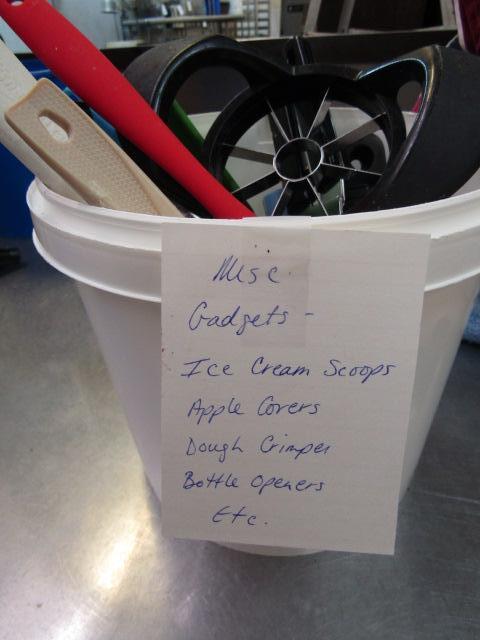 Misc
Gadgets -
Ice Cream Scoops
Apple Corers
Dough Crimper
Bottle Openers
Etc.